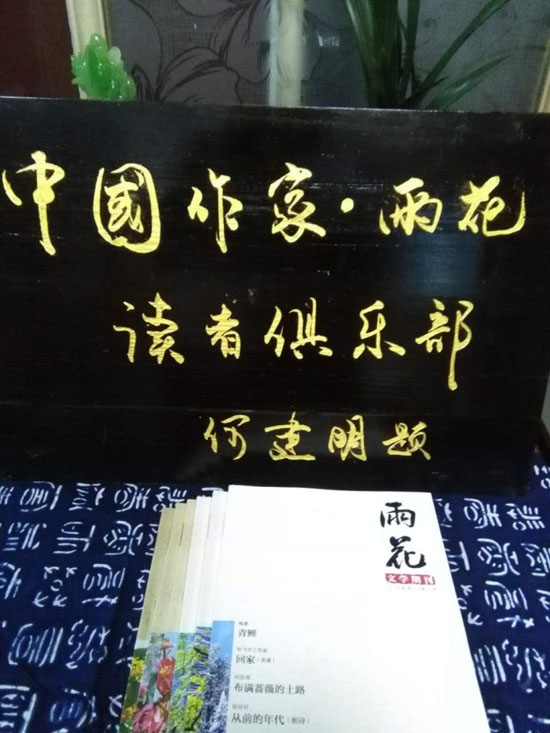 中國作家·雨花
读者俱乐部
何建明题
雨花
文学期刊
青鲤
回家
布满蔷薇的土路
从前的年代（组诗）